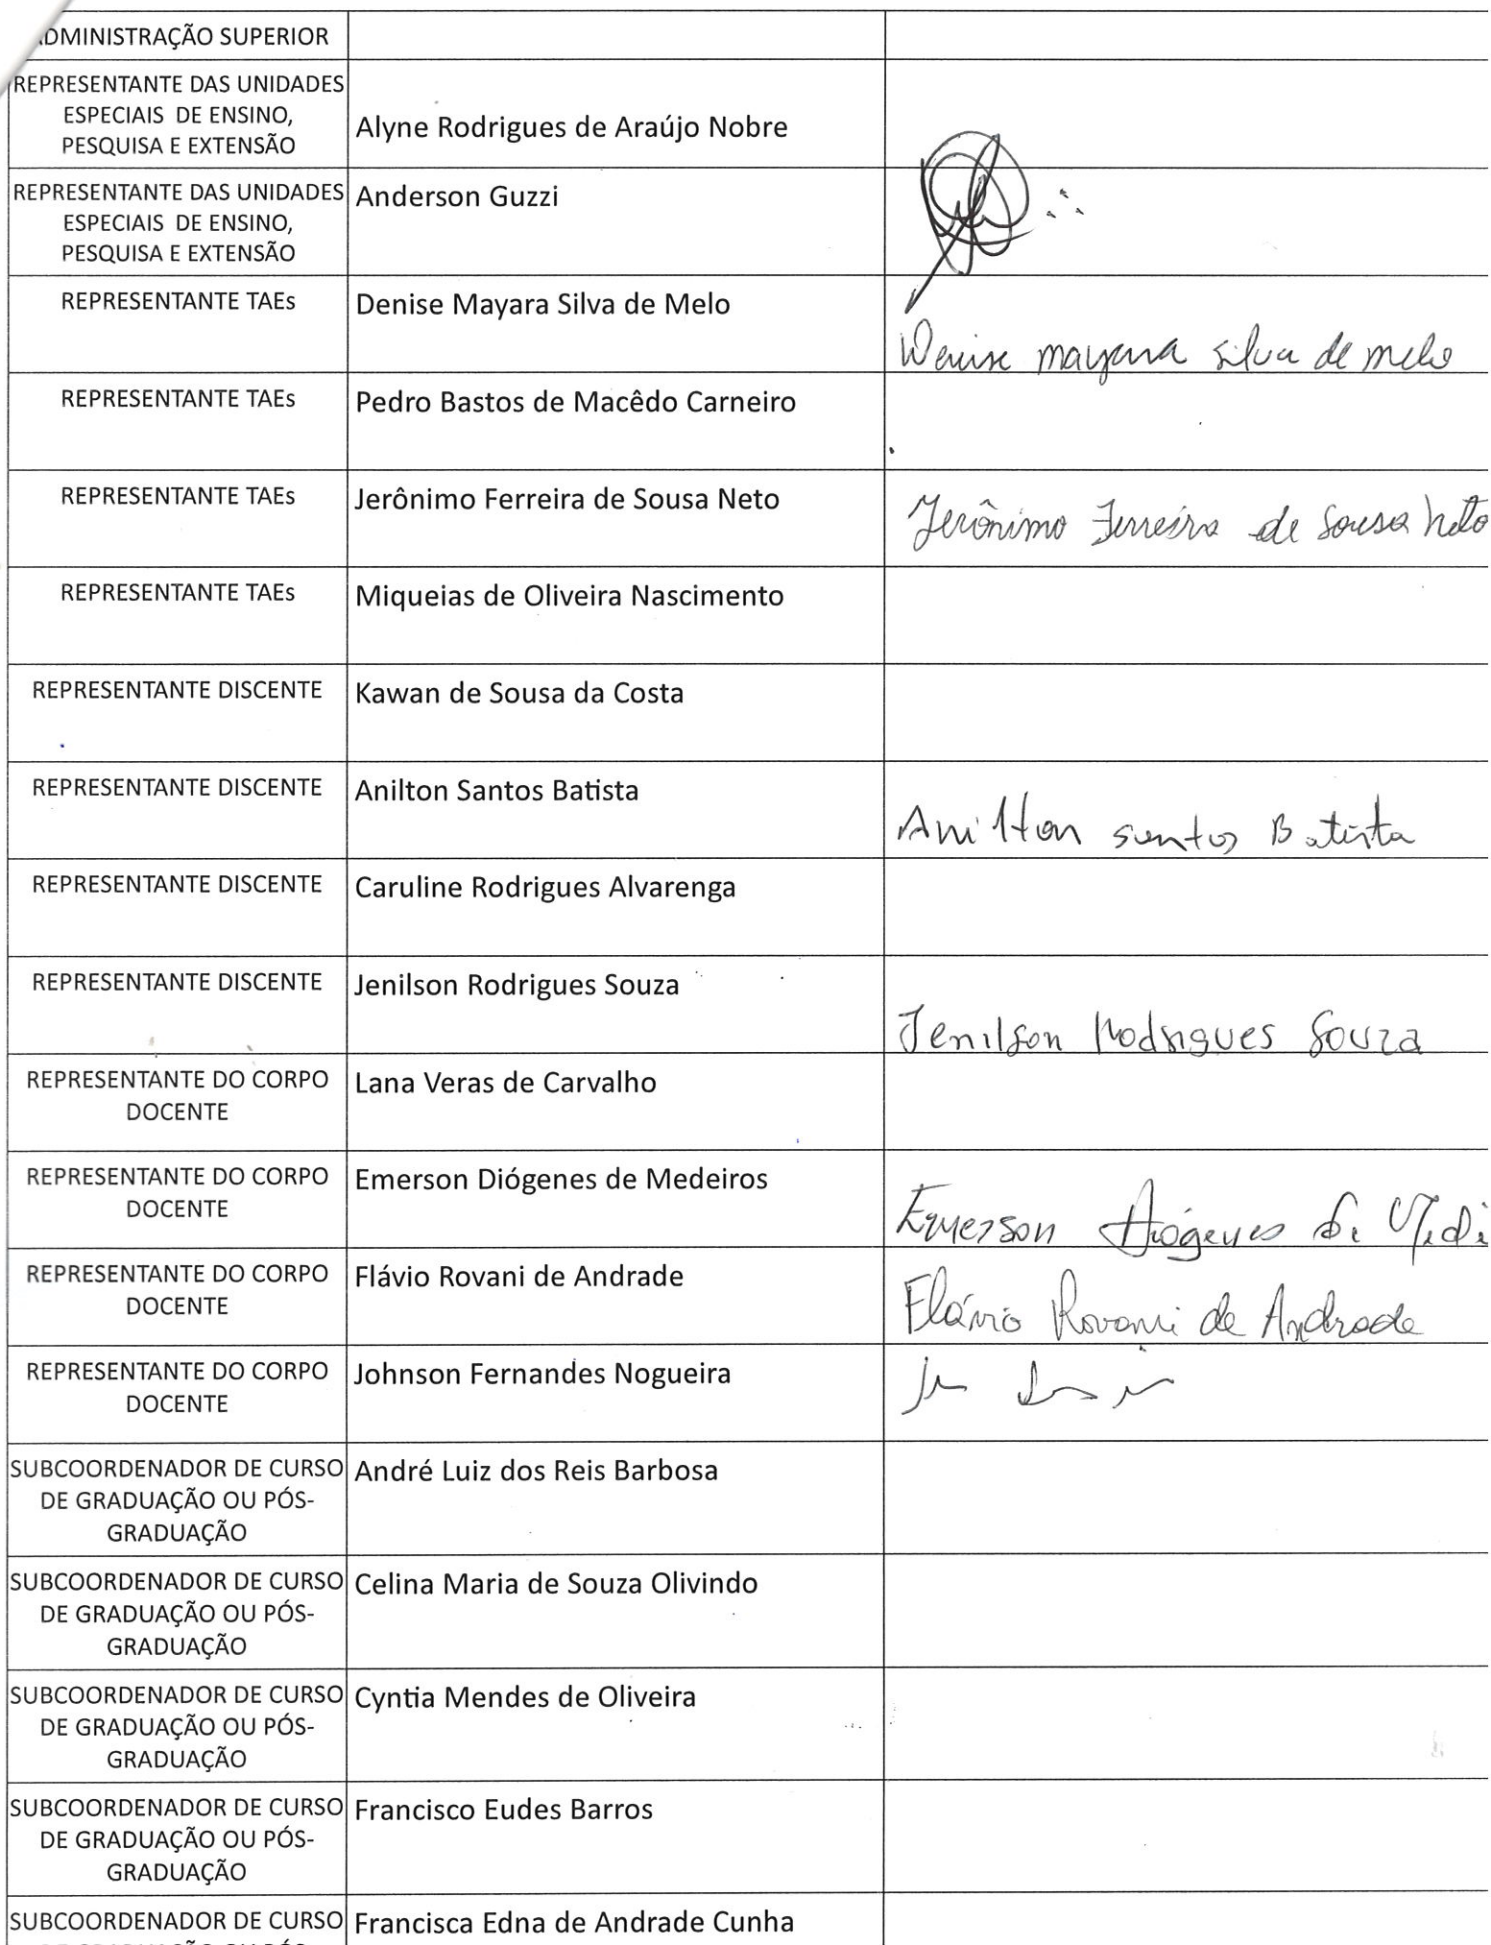 DMINISTRAÇÃO SUPERIOR
REPRESENTANTE DAS UNIDADES
ESPECIAIS DE ENSINO,
PESQUISA E EXTENSÃO
Alyne Rodrigues de Araújo Nobre
REPRESENTANTE DAS UNIDADES
ESPECIAIS DE ENSINO,
PESQUISA E EXTENSÃO
Anderson Guzzi
REPRESENTANTE TAEs
Denise Mayara Silva de Melo
Denise mayara silva de melo
REPRESENTANTE TAEs
Pedro Bastos de Macêdo Carneiro
REPRESENTANTE TAEs
Jerônimo Ferreira de Sousa Neto
Jerônimo Ferreira de Sousa Neto
REPRESENTANTE TAEs
Miqueias de Oliveira Nascimento
REPRESENTANTE DISCENTE
Kawan de Sousa da Costa
REPRESENTANTE DISCENTE
Anilton Santos Batista
Anilton santos Batista
REPRESENTANTE DISCENTE
Caruline Rodrigues Alvarenga
REPRESENTANTE DISCENTE
Jenilson Rodrigues Souza
Jenilson Rodrigues Souza
REPRESENTANTE DO CORPO
DOCENTE
Lana Veras de Carvalho
REPRESENTANTE DO CORPO
DOCENTE
Emerson Diógenes de Medeiros
Emerson Diógenes de Medi
REPRESENTANTE DO CORPO
DOCENTE
Flávio Rovani de Andrade
Flávio Rovani de Andrade
REPRESENTANTE DO CORPO
DOCENTE
Johnson Fernandes Nogueira
SUBCOORDENADOR DE CURSO
DE GRADUAÇÃO OU PÓS-
GRADUAÇÃO
André Luiz dos Reis Barbosa
SUBCOORDENADOR DE CURSO
DE GRADUAÇÃO OU PÓS-
GRADUAÇÃO
Celina Maria de Souza Olivindo
SUBCOORDENADOR DE CURSO
DE GRADUAÇÃO OU PÓS-
GRADUAÇÃO
Cyntia Mendes de Oliveira
SUBCOORDENADOR DE CURSO
DE GRADUAÇÃO OU PÓS-
GRADUAÇÃO
Francisco Eudes Barros
SUBCOORDENADOR DE CURSO
Francisca Edna de Andrade Cunha